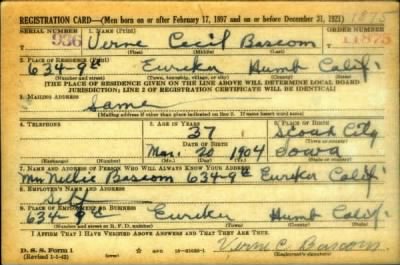 REGISTRATION CARD—(Men born on or after February 17, 1897 and on or before December 31, 1921)
SERIAL NUMBER 1. NAME (Print) ORDER NUMBER
T 956 Verne Cecil Bascom T 11875
(First) (Middle) (Last)
2. PLACE OF RESIDENCE (Print)
634-9th Eureka Humb Calif
(Number and street) (Town, township, village, or city) (County) (State)
[THE PLACE OF RESIDENCE GIVEN ON THE LINE ABOVE WILL DETERMINE LOCAL BOARD
JURISDICTION; LINE 2 OF REGISTRATION CERTIFICATE WILL BE IDENTICAL]
3. MAILING ADDRESS
Same
[Mailing address if other than place indicated on line 2. If same insert word same]
4. TELEPHONE 5. AGE IN YEARS 6. PLACE OF BIRTH
37
DATE OF BIRTH (Town or county)
Mar. 20 1904 Iowa
(Exchange) (Number) (Mo.) (Day) (Yr.) (State or country)
7. NAME AND ADDRESS OF PERSON WHO WILL ALWAYS KNOW YOUR ADDRESS
Mrs Nellie Bascom 634-9th Eureka Calif
8. EMPLOYER'S NAME AND ADDRESS
Self
9. PLACE OF EMPLOYMENT OR BUSINESS
634-9th Eureka Humb Calif
(Number and street or R. F. D. number) (Town) (County) (State)
I AFFIRM THAT I HAVE VERIFIED ABOVE ANSWERS AND THAT THEY ARE TRUE.
D. S. S. Form 1
(Revised 1-1-42) (over) Verne C. Bascom
(Registrant's signature)